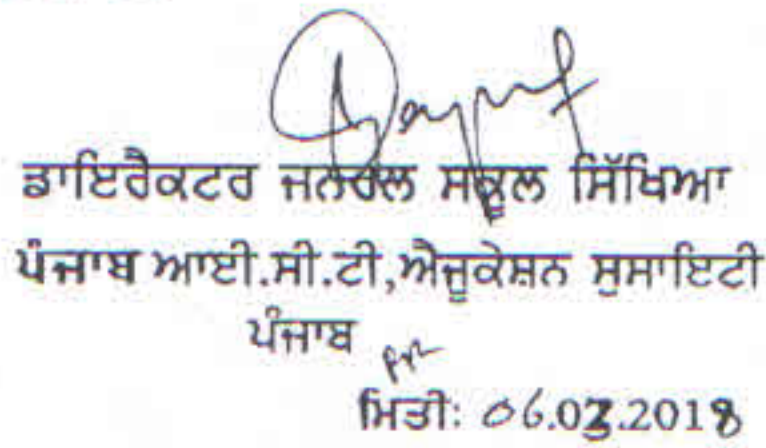 ਡਾਇਰੈਕਟਰ ਜਨਰਲ ਸਕੂਲ ਸਿੱਖਿਆ
ਪੰਜਾਬ ਆਈ.ਸੀ.ਟੀ,ਐਜੂਕੇਸ਼ਨ ਸੁਸਾਇਟੀ
ਪੰਜਾਬ
ਮਿਤੀ: 06.03.2018